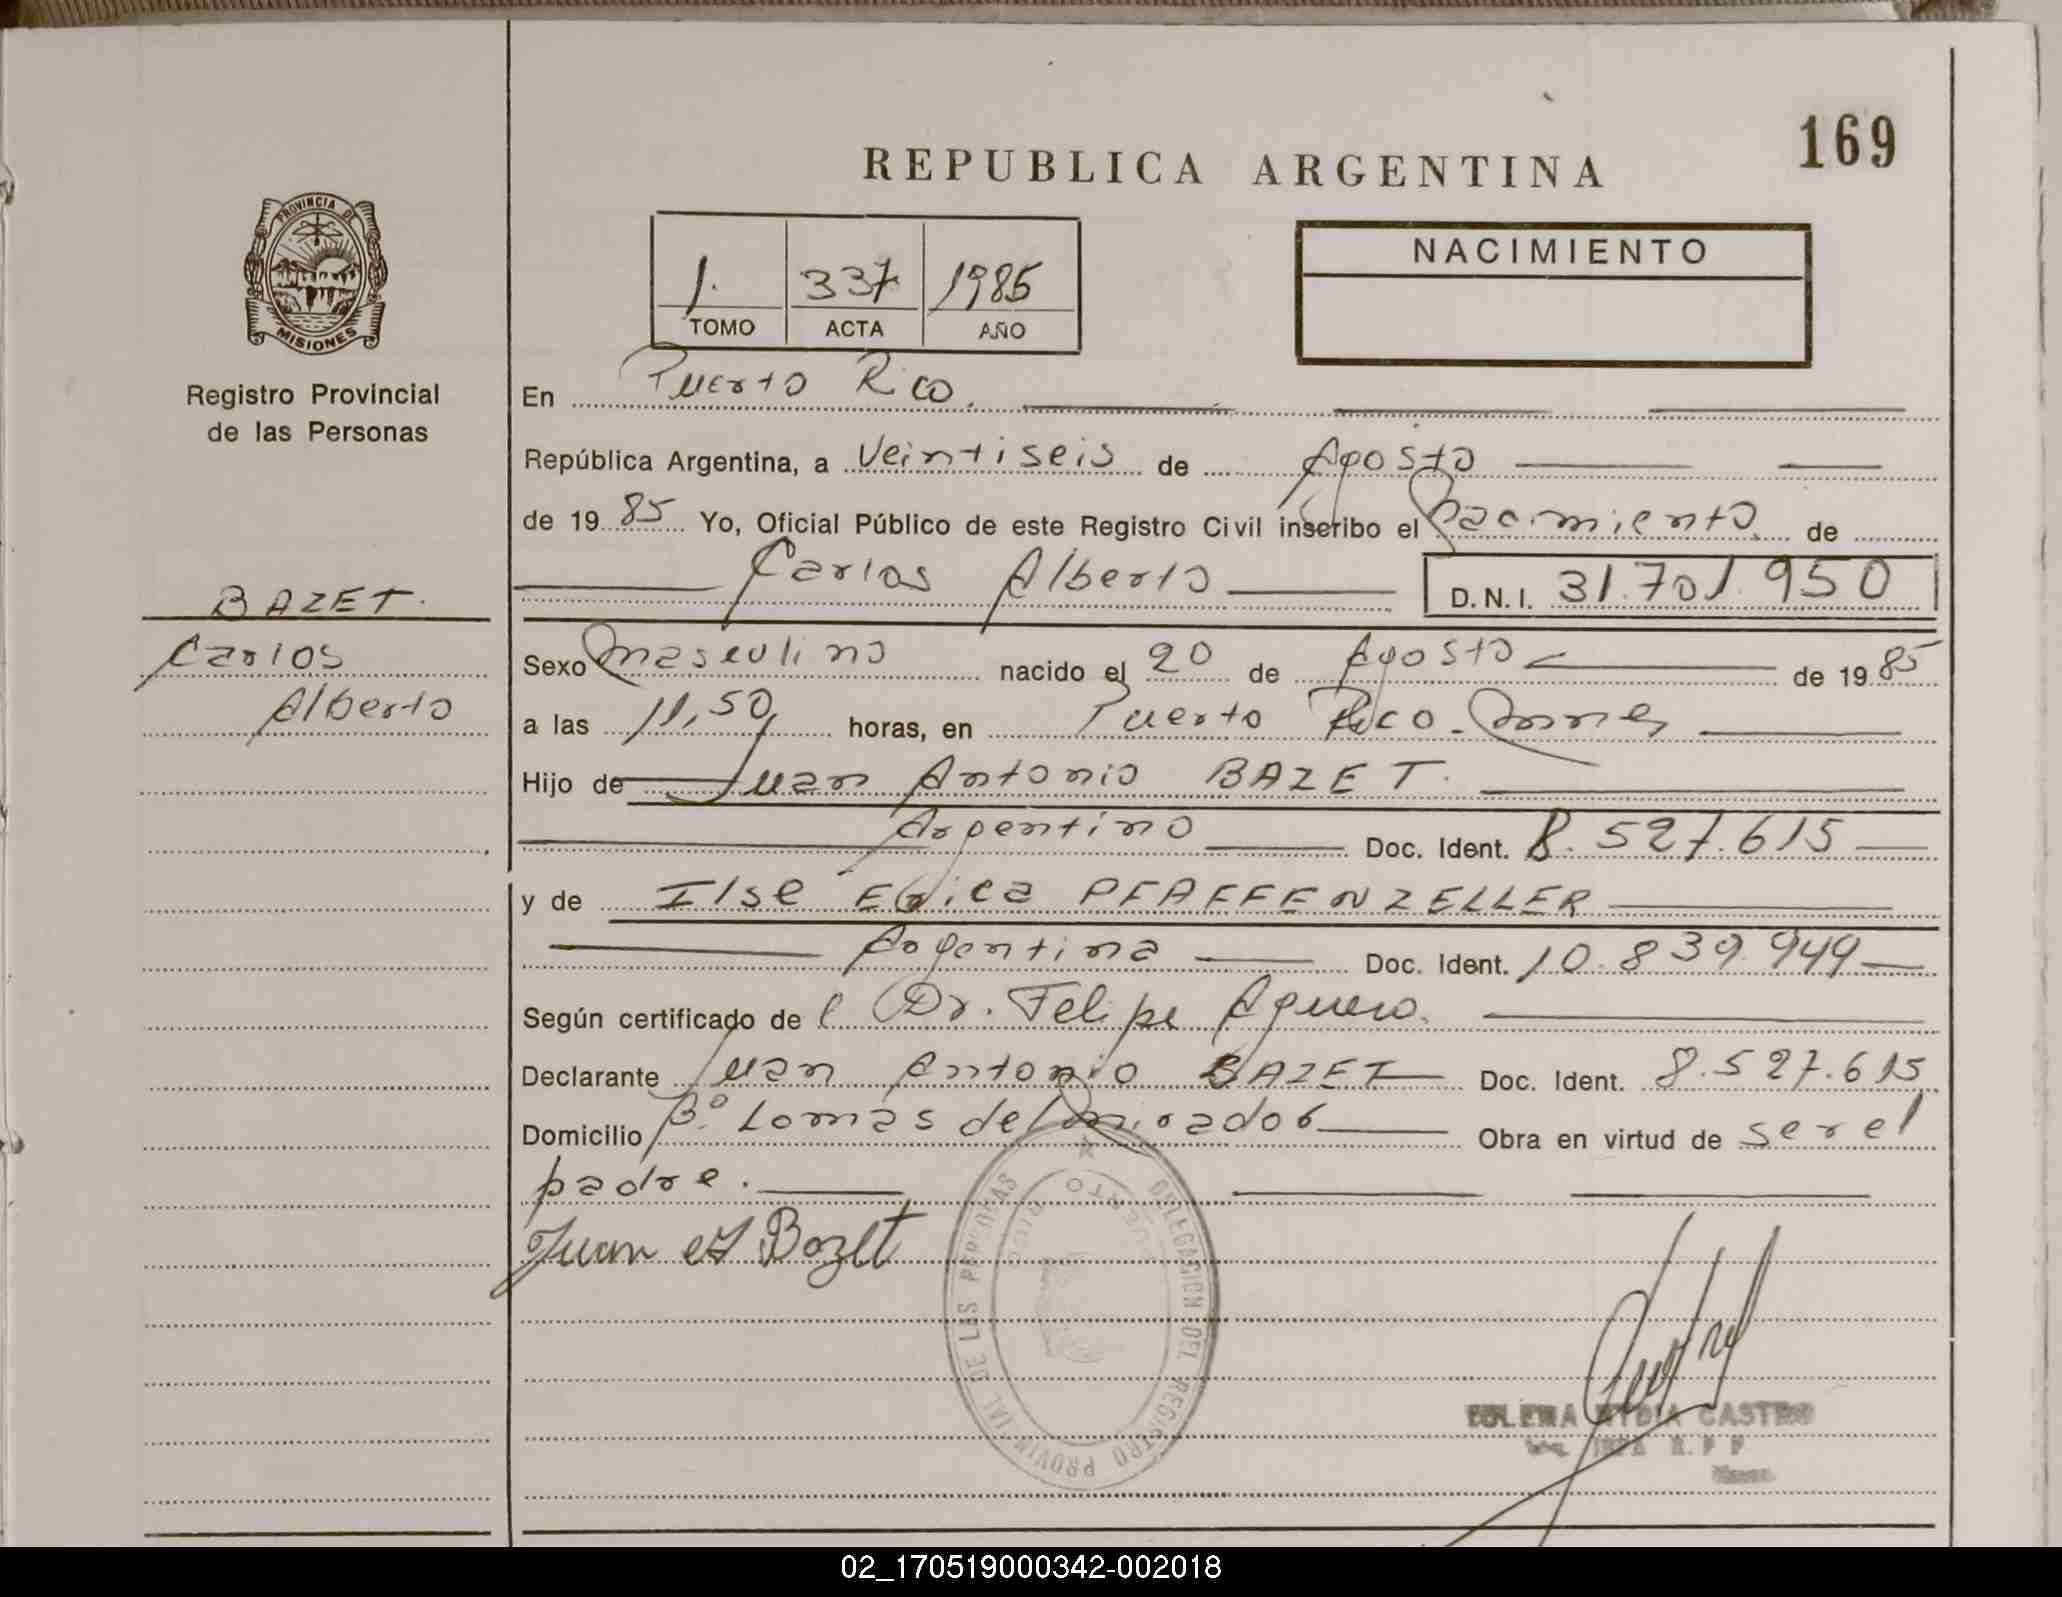 169
REPUBLICA ARGENTINA
PROVINCIA DE
MISIONES
Registro Provincial
de las Personas
1. 337 1985
TOMO ACTA AÑO
NACIMIENTO
En Puerto Rico.
República Argentina, a Veintiseis de Agosto
de 19 85 Yo, Oficial Público de este Registro Civil inscribo el Nacimiento de
Carlos Alberto D.N.I. 31.701.950
BAZET.
Carlos
Alberto
Sexo masculino nacido el 20 de Agosto de 19 85
a las 11,50 horas, en Puerto Rico - Mnes
Hijo de Juan Antonio BAZET.
Argentino Doc. Ident. 8.527.615
y de Ilse Erica PFAFFENZELLER
Argentina Doc. Ident. 10.839.949
Según certificado de l Dr. Felipe Aguero.
Declarante Juan Antonio BAZET Doc. Ident. 8.527.615
Domicilio Bº. Lomas del Mirador Obra en virtud de ser el
padre.
Juan A Bazet
DELEGACION DEL REGISTRO PROVINCIAL DE LAS PERSONAS
PUERTO RICO
CASTRO
R. P. P.
02_170519000342-002018